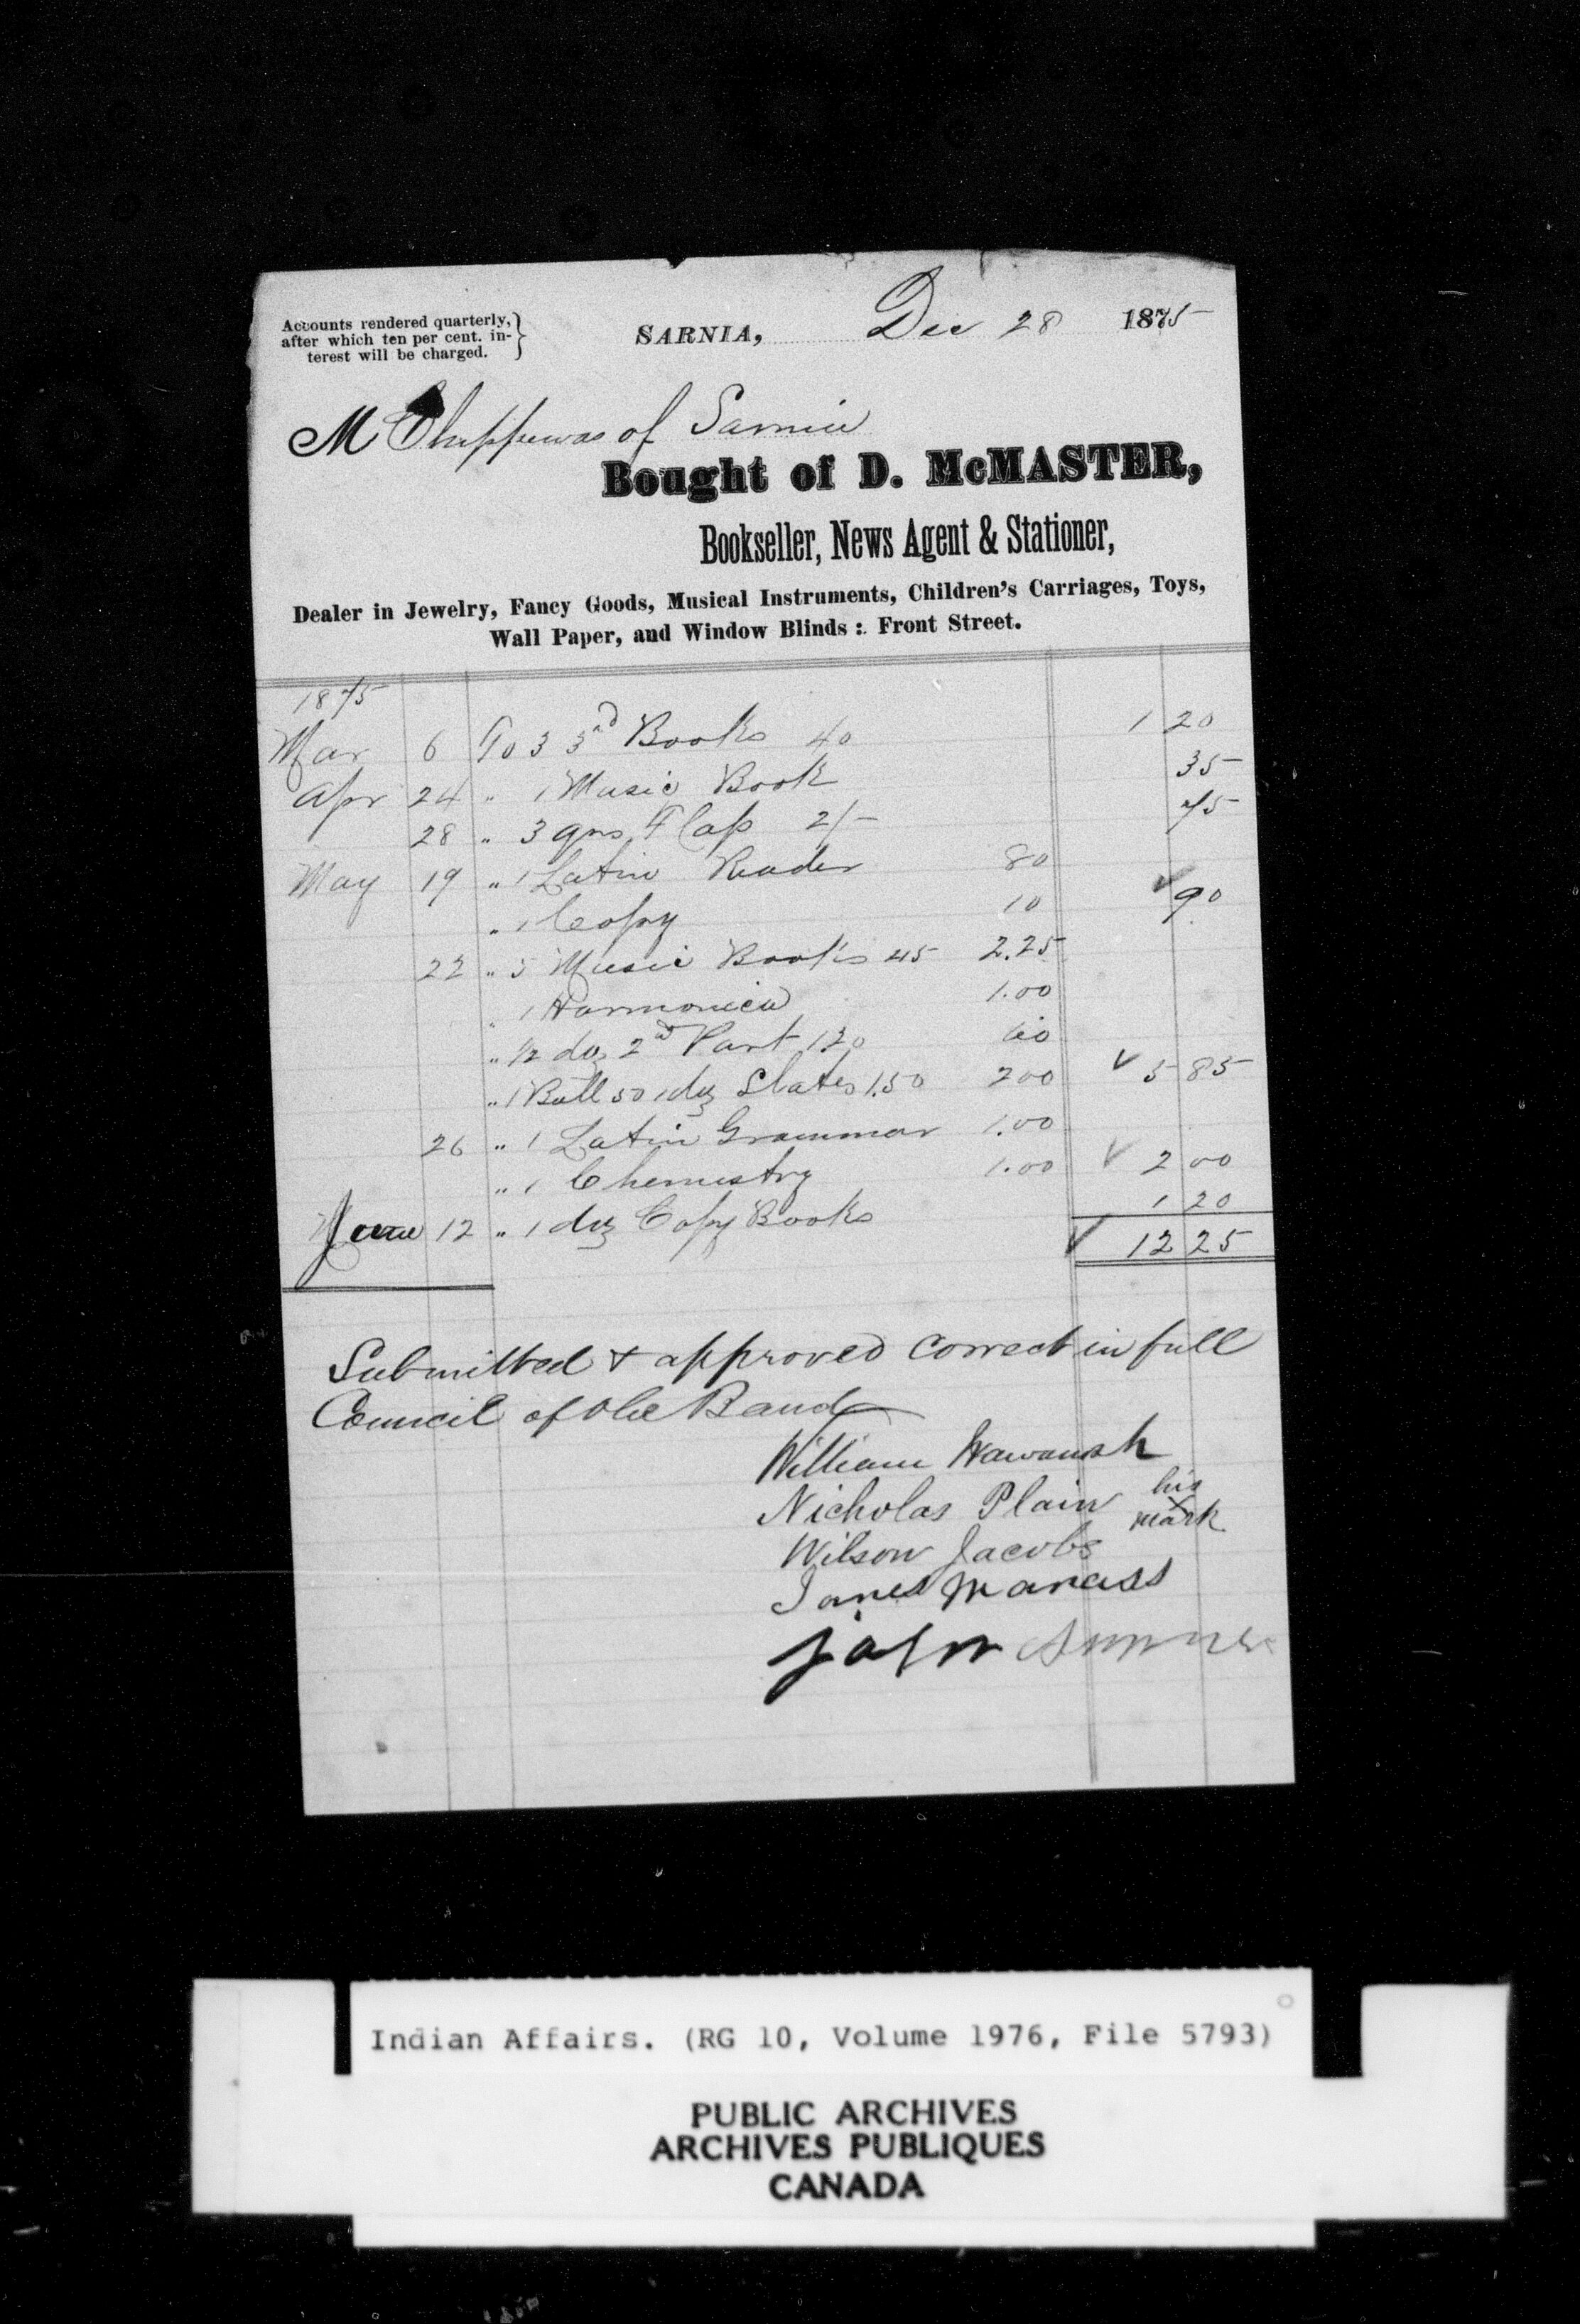 Accounts rendered quarterly,
after which ten per cent. in-
terest will be charged.
SARNIA, Dec 28 1875
M Chippewas of Sarnia
Bought of D. McMASTER,
Bookseller, News Agent & Stationer,
Dealer in Jewelry, Fancy Goods, Musical Instruments, Children's Carriages, Toys,
Wall Paper, and Window Blinds : Front Street.
1875
Mar 6 To 3 3rd Books 40 1 20
Apr 24 " 1 Music Book 35
28 " 3 qrs F Cap 2/- 75
May 19 " 1 Latin Reader 80
" 1 Copy 10 90
22 " 5 Music Books 45 2.25
" 1 Harmonica 1.00
" 1/2 doz 2d Part 120 60
" 1 Ball 50 1 doz Slates 1.50 200 5 85
26 " 1 Latin Grammar 1.00
" 1 Chemistry 1.00 2 00
June 12 " 1 doz Copy Books 1 20
12 25
Submitted & approved correct in full
Council of the Band
William Wawanosh
Nicholas Plain his x mark
Wilson Jacobs
James Manass
John
Indian Affairs. (RG 10, Volume 1976, File 5793)
PUBLIC ARCHIVES
ARCHIVES PUBLIQUES
CANADA